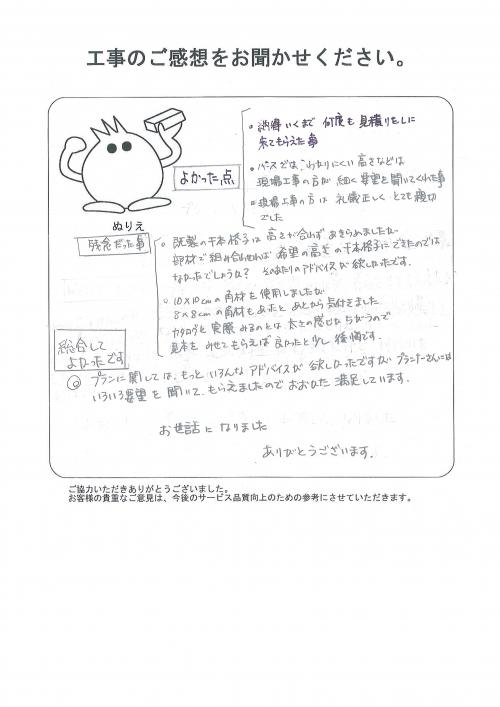 工事のご感想をお聞かせください。
ぬりえ
よかった点
。納得いくまで 何度も見積りをしに
来てもらえた事
。パースでは、わかりにくい高さなどは
現場工事の方が 細く要望を聞いてくれた事
。現場工事の方は 礼儀正しく とても親切
でした
残念だった事
。既製の千本格子は高さが合わず あきらめましたが
部材で組み合わせれば 希望の高さの千本格子にできたのでは
なかったでしょうか? そのあたりのアドバイスが欲しかったです.
。10×10cmの角材を使用しましたが
8×8cmの角材もあったと あとから気付きました
カタログと実際みるのとは太さの感じもちがうので
見本を みせてもらえば良かったと少し後悔です.
総合して
よかったです
◎ プランに関しては、もっといろんなアドバイスが欲しかったですがプランナーさんには
いろいろ要望を聞いて、もらえましたのでおおむね満足しています.
お世話になりました
ありがとうございます.
ご協力いただきありがとうございました。
お客様の貴重なご意見は、今後のサービス品質向上のための参考にさせていただきます。